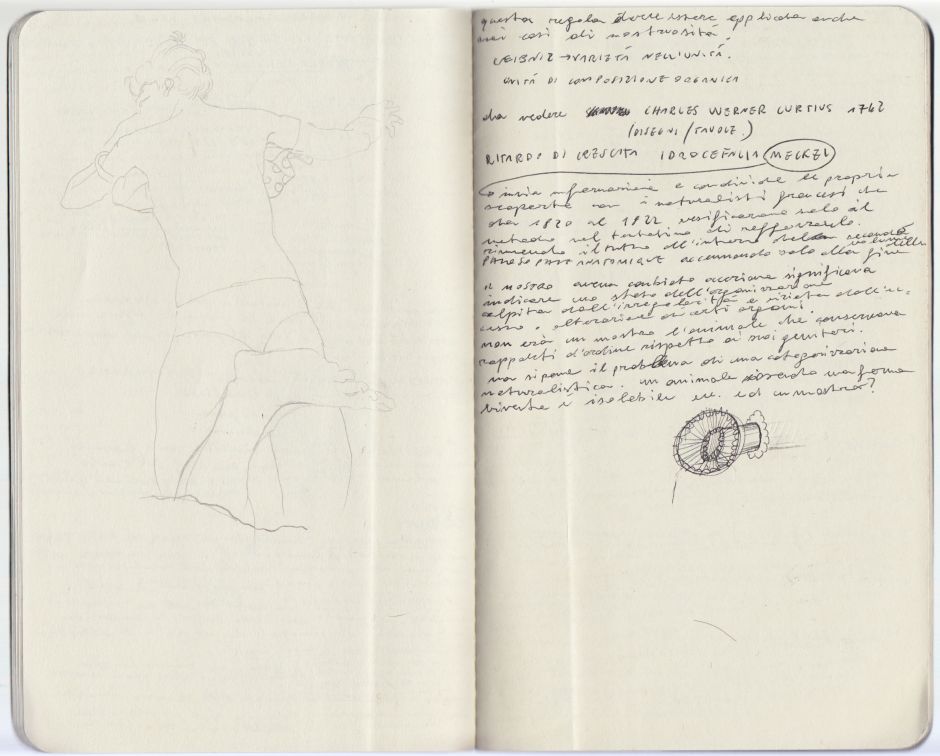 questa regola deve essere applicata anche
nei casi di mostruosità.
LEIBNIZ → VARIETÁ NELL'UNITÁ.
UNITÁ DI COMPOSIZIONE ORGANICA
da vedere CHARLES WERNER CURTIUS 1762
(DISEGNI / TAVOLE.)
RITARDO DI CRESCITA IDROCEFALIA MECKEL
invia informazioni e condivide le proprie
scoperte con i naturalisti francesi che
dal 1820 al 1822 verificarono solo il
metodo nel tentativo di rafforzarlo
il tutto all'interno della seconda
volume
accennando solo alla fine
il mostro aveva cambiato significava
indicare uno stato dell'organizzazione
colpita dall'irregolarità e
o alterazione di certi organi.
non era un mostro l'animale che conservava
rapporti d'ordine rispetto ai suoi genitori.
ma si pone il problema di una categorizzazione
naturalistica. un animale essendo una forma
vivente è isolabile ed un mostro?